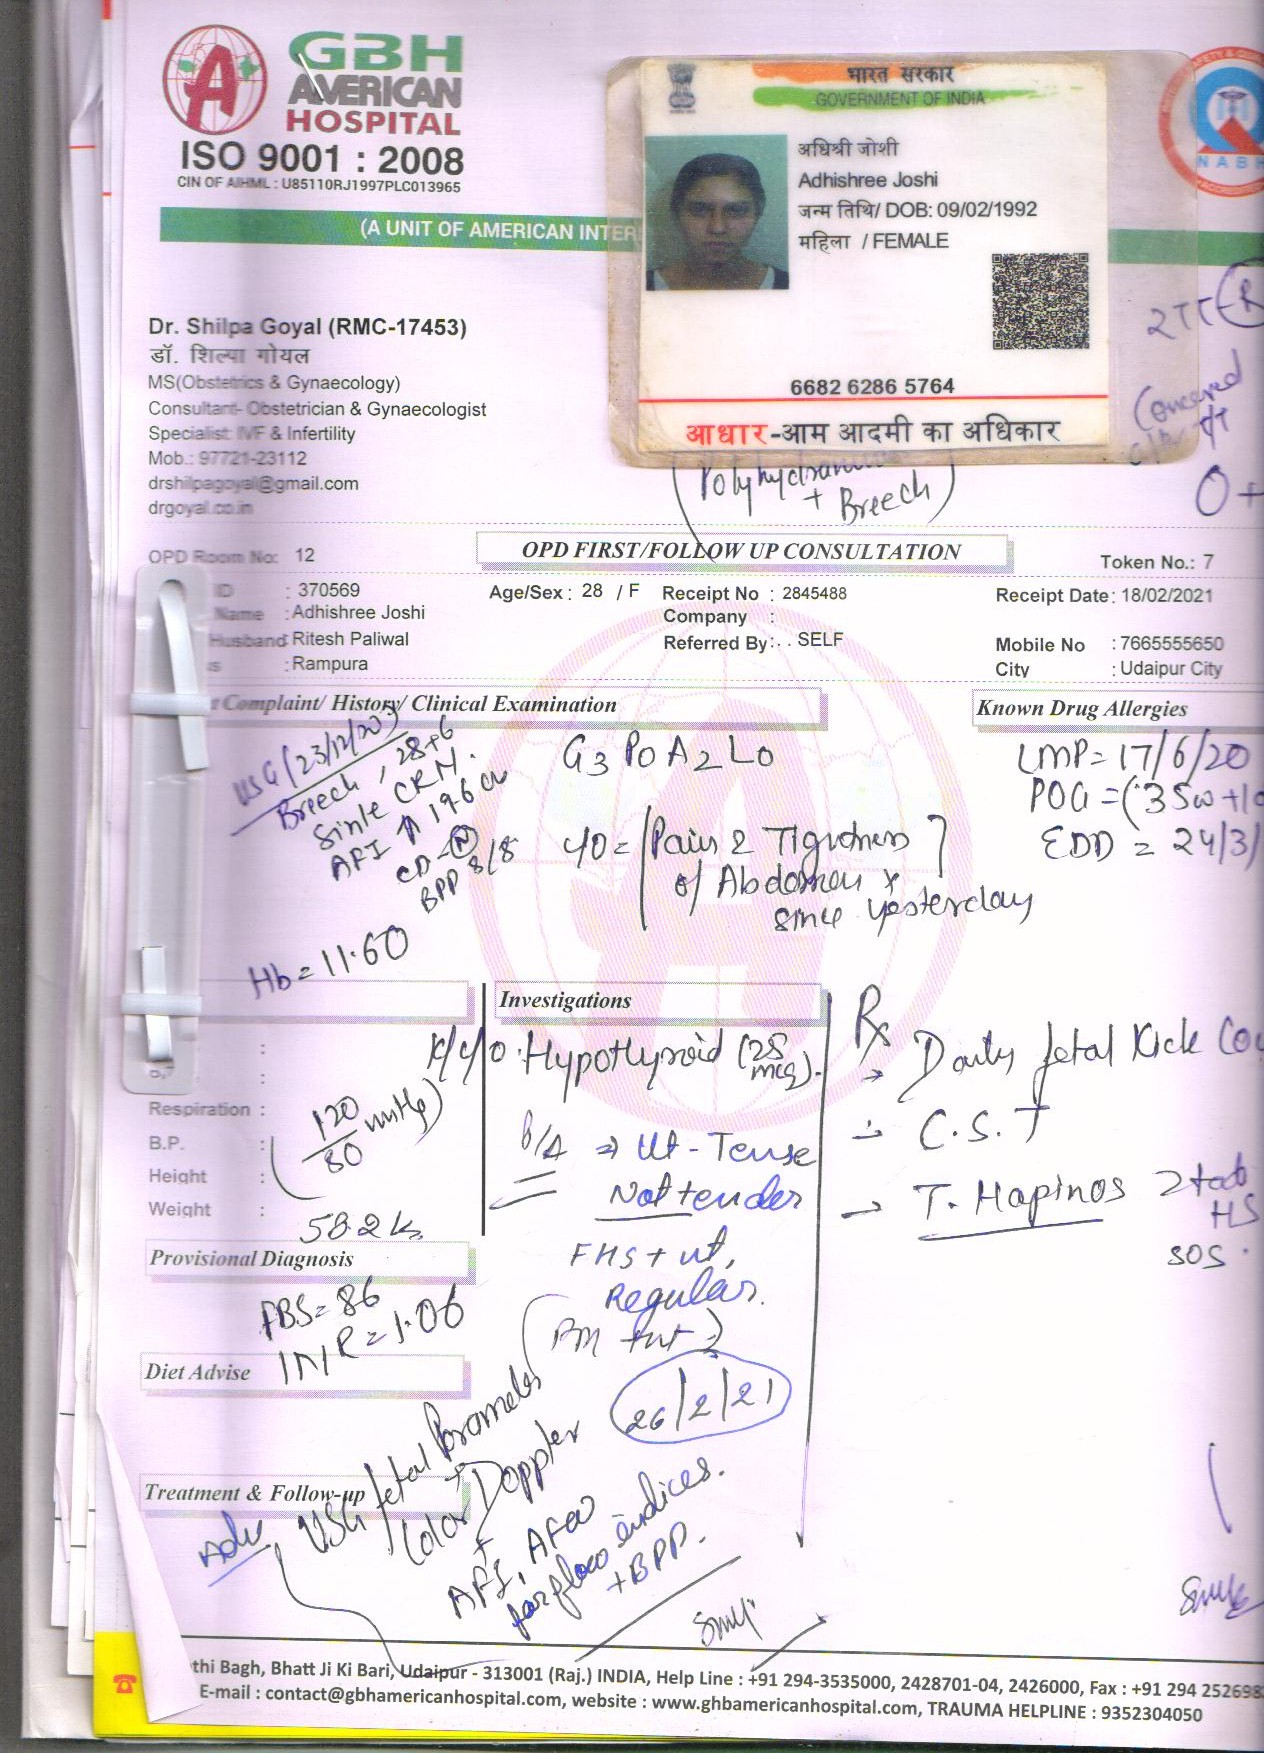 GBH
AMERICAN
HOSPITAL
ISO 9001 : 2008
CIN OF AIHML : U85110RJ1997PLC013965
(A UNIT OF AMERICAN INTER
NABH
भारत सरकार
GOVERNMENT OF INDIA
अधिश्री जोशी
Adhishree Joshi
जन्म तिथि/ DOB: 09/02/1992
महिला / FEMALE
6682 6286 5764
आधार-आम आदमी का अधिकार
Dr. Shilpa Goyal (RMC-17453)
डॉ. शिल्पा गोयल
MS(Obstetrics & Gynaecology)
Consultant- Obstetrician & Gynaecologist
Specialist IVF & Infertility
Mob.: 97721-23112
drshilpagoyal@gmail.com
drgoyal.co.in
(Polyhydramnios
+ Breech)
O+
OPD Room No: 12
OPD FIRST/FOLLOW UP CONSULTATION
Token No.: 7
ID : 370569
Age/Sex : 28 / F
Receipt No : 2845488
Receipt Date: 18/02/2021
Name : Adhishree Joshi
Company :
Husband Ritesh Paliwal
Referred By: . . SELF
Mobile No : 7665555650
s : Rampura
City : Udaipur City
t Complaint/ History/ Clinical Examination
Known Drug Allergies
USG (23/12/20)
Breech, 28+6
Sinle CRH.
AFI ↑ 19.6 cm
CD-N
BPP 8/8
Hb = 11.60
G3 P0 A2 L0
c/o = Pain & Tightness
of Abdomen x
since yesterday
LMP = 17/6/20
POG = (35w+1d
EDD = 24/3/
Respiration :
B.P. :
120/80 mmHg
Height :
Weight :
58.2 k
Provisional Diagnosis
FBS = 86
INR = 1.06
Diet Advise
Treatment & Follow-up
Investigations
K/c/o Hypothyroid (25 mcg).
P/A ⇒ Ut - Tense
Not tender
FHS + nt,
Regular.
26/2/21
Adv
USG fetal
+
Color Doppler
+
AFI, AFV
for flow indices.
+ BPP.
Rx
→ Daily fetal Kick Cou
→ C.S.T
→ T. Hapinos 2 tab
HS
SOS.
thi Bagh, Bhatt Ji Ki Bari, Udaipur - 313001 (Raj.) INDIA, Help Line : +91 294-3535000, 2428701-04, 2426000, Fax : +91 294 252698
E-mail : contact@gbhamericanhospital.com, website : www.ghbamericanhospital.com, TRAUMA HELPLINE : 9352304050